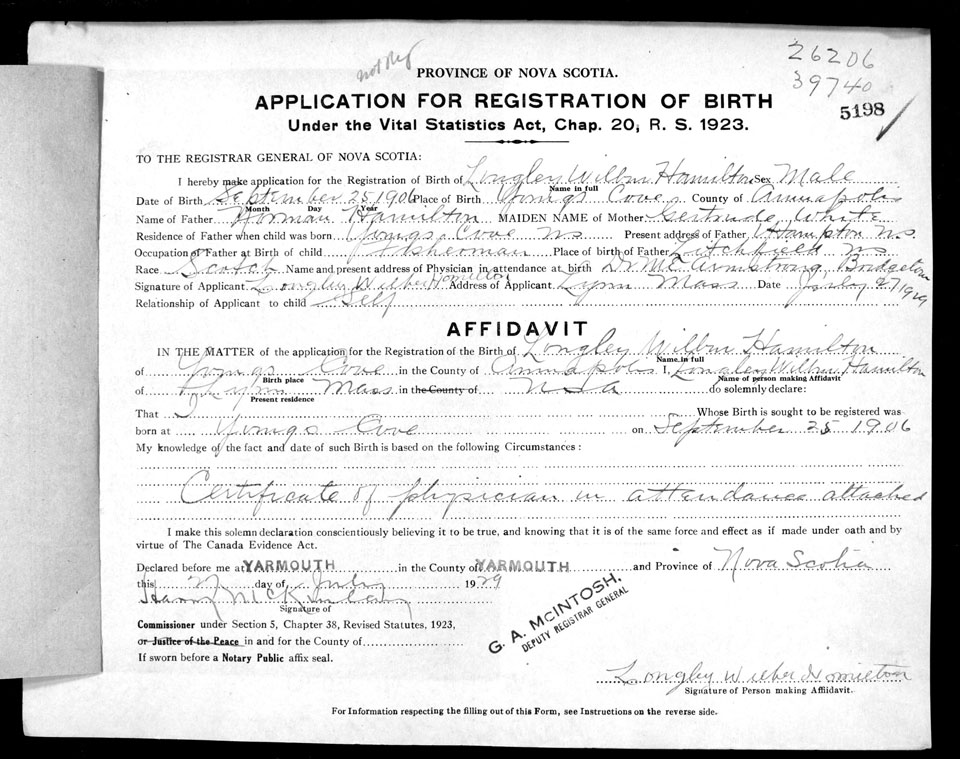 not Reg
26206
39740
5198
PROVINCE OF NOVA SCOTIA.
APPLICATION FOR REGISTRATION OF BIRTH
Under the Vital Statistics Act, Chap. 20, R. S. 1923.
TO THE REGISTRAR GENERAL OF NOVA SCOTIA:
I hereby make application for the Registration of Birth of Longley Wilbur Hamilton Sex Male
Name in full
Date of Birth September 25 1906 Place of Birth Youngs Cove County of Annapolis
Month Day Year
Name of Father Norman Hamilton MAIDEN NAME of Mother Gertrude White
Residence of Father when child was born Youngs Cove NS Present address of Father Hampton NS.
Occupation of Father at Birth of child Fisherman Place of birth of Father Litchfield NS
Race Scotch Name and present address of Physician in attendance at birth Dr Armstrong Bridgetown
Signature of Applicant Longley Wilber Hamilton Address of Applicant Lynn Mass Date July 27 1929
Relationship of Applicant to child Self
AFFIDAVIT
IN THE MATTER of the application for the Registration of the Birth of Longley Wilbur Hamilton
Name in full
of Youngs Cove in the County of Annapolis I, Longley Wilbur Hamilton
Birth place Name of person making Affidavit
of Lynn Mass in the County of USA do solemnly declare:
Present residence
That I Whose Birth is sought to be registered was
born at Youngs Cove on September 25 1906
My knowledge of the fact and date of such Birth is based on the following Circumstances:
Certificate of physician in attendance attached
I make this solemn declaration conscientiously believing it to be true, and knowing that it is of the same force and effect as if made under oath and by
virtue of The Canada Evidence Act.
Declared before me at YARMOUTH in the County of YARMOUTH and Province of Nova Scotia
this 27 day of July 1929
Harry
Signature of
Commissioner under Section 5, Chapter 38, Revised Statutes, 1923,
or Justice of the Peace in and for the County of
If sworn before a Notary Public affix seal.
G. A. McINTOSH,
DEPUTY REGISTRAR GENERAL
Longley Wilber Hamilton
Signature of Person making Affidavit.
For Information respecting the filling out of this Form, see Instructions on the reverse side.